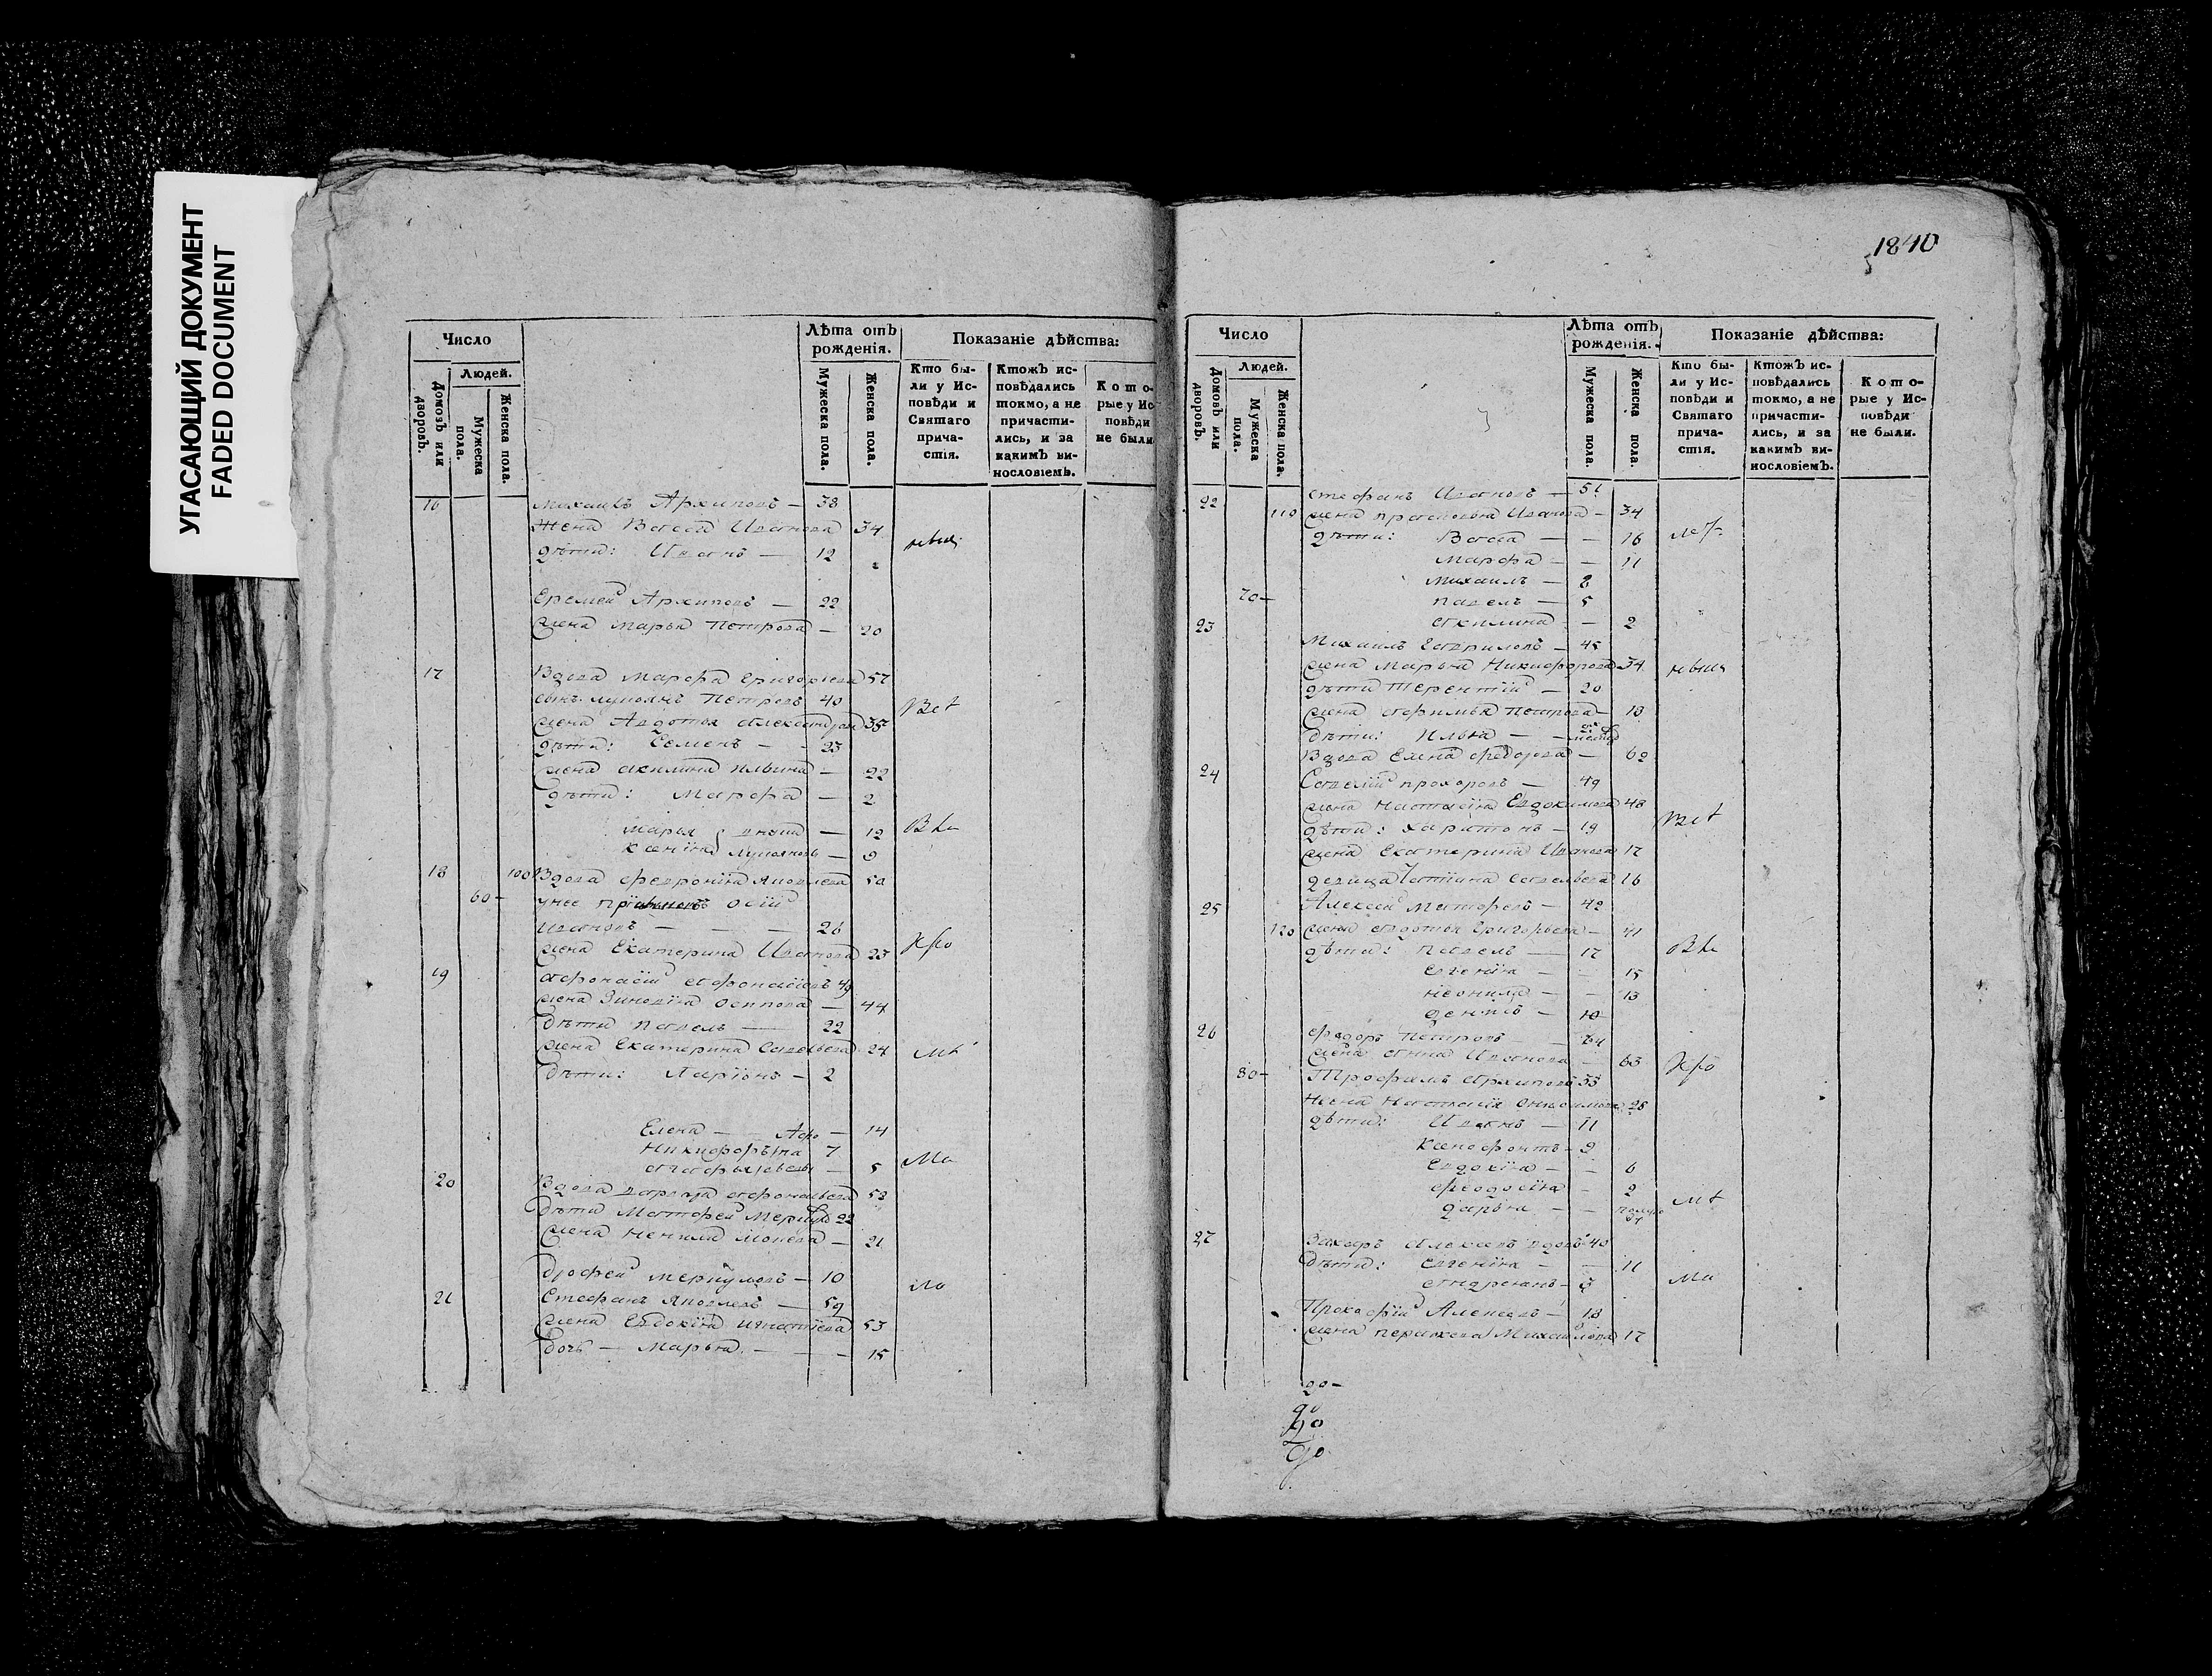 УГАСАЮЩИЙ ДОКУМЕНТ
FADED DOCUMENT
Число
Людей.
Домовъ или дворовъ.
Мужеска пола.
Женска пола.
Лѣта отъ рожденія.
Мужеска пола.
Женска пола.
Показаніе дѣйства:
Кто бы-
ли у Ис-
повѣди и
Святаго
прича-
стія.
Ктожъ ис-
повѣдались
токмо, а не
причасти-
лись, и за
какимъ ви-
нословіемъ.
Кото-
рые у Ис
повѣди
не были
16 Михаилъ Архиповъ — 38
Жена Васса Иванова 34
дѣти: Иванъ — 12
Еремей Архиповъ — 22
жена Марья Петрова — 20
17 Вдова Марфа Григорьева 57
сынъ Лупоянъ Петровъ 40
жена Авдотья Александрова 35
дѣти: Семенъ — 23
жена Акилина Ильина — 22
дѣти: Марфа — 2
Марья — 12
Ксенія Лупоянов — 9
18 100 Вдова Феврония Яковлева 50
60 — у нее Осій
Ивановъ — 26
жена Екатерина Иванова 23
19 Афонасій Афонасіевъ 49
жена Зиновія Осипова — 44
дѣти Павелъ — 22
жена Екатерина Савельева 24
дѣти: Ларіонъ — 2
Елена — Афо — 14
Никифоръ на 7
— 5
20 Вдова Афонасьева 53
Дѣти Матфей 22
жена Ненила — 21
Дрофей Меркуловъ — 10
21 Стефанъ Яковлевъ — 59
жена Евдокія Игнатіева 53
дочь — Марья — 15
1840
Число
Людей.
Домовъ или дворовъ.
Мужеска пола.
Женска пола.
Лѣта отъ рожденія.
Мужеска пола.
Женска пола.
Показаніе дѣйства:
Кто бы-
ли у Ис-
повѣди и
Святаго
прича-
стія.
Ктожъ ис-
повѣдались
токмо, а не
причасти-
лись, и за
какимъ ви-
нословіемъ.
Кото-
рые у Ис-
повѣди
не были.
22 Стефанъ Ивановъ — 51
110 жена Прасковья Иванова — 34
дѣти: Васса — — 16
Марфа — — 11
Михаилъ — 8
70 — Павелъ — 5
Акилина — 2
23 Михаилъ Гавриловъ — 45
жена Марья Никифорова 34
дѣти Терентій — 20
жена Афимья Петрова — 18
Дѣти: Илья —
Вдова Елена Федорова — 62
24 Савелій Прохоровъ — 49
жена Настасія Евдокимова 48
дѣти: Харитонъ — 19
жена Екатерина Иванова 17
девица Татіана Савельева 16
25 Алексей Матфевъ — 42
120 жена Авдотья Григорьева — 41
дѣти: Павелъ — 17
Евгенія — — 15
Неонила — — 13
Денисъ — 10
26 Федоръ Петровъ — 64
жена Анна Иванова — 63
80 — Трофимъ Архиповъ 33
Жена Настасія 28
дѣти: Иванъ — 11
Ксенофонтъ — 9
Евдокія — — 6
Феодосія — 2
Дарья — —
27 Захаръ Алексевъ вдовъ 40
Дѣти: Евгенія — — 11
Андреянъ — 3
Прокофій Алексевъ — 18
жена Михайлова 17
20 —